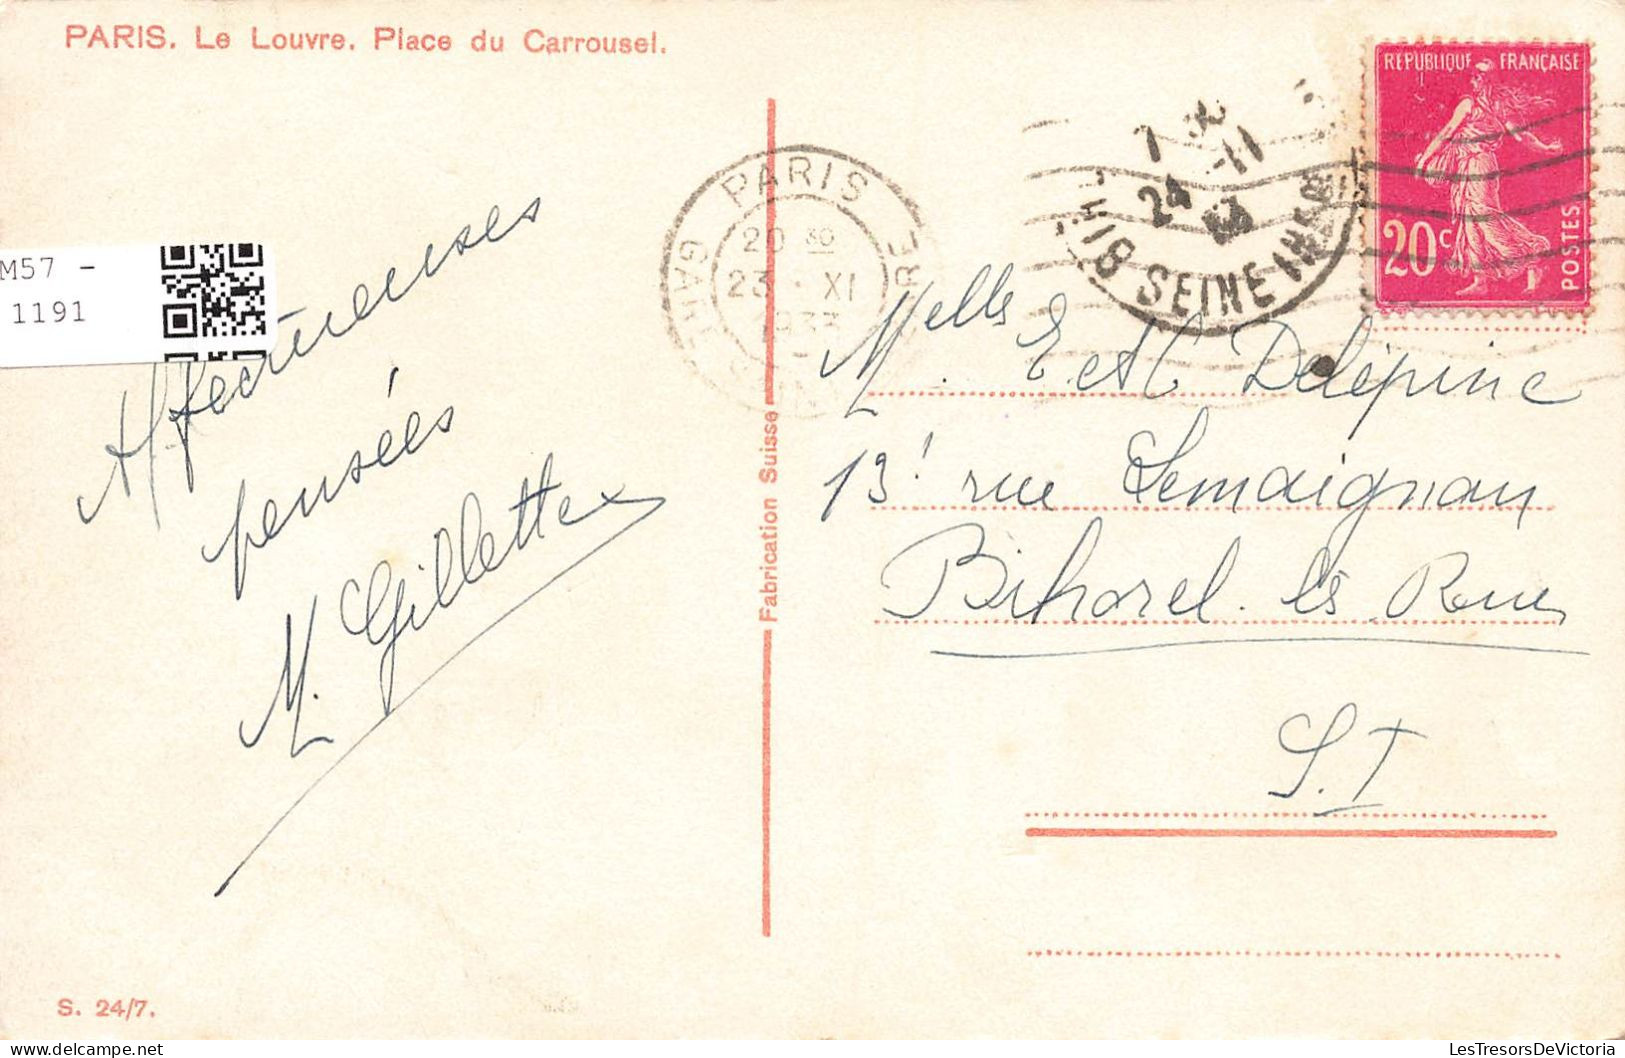 PARIS. Le Louvre. Place du Carrousel.
M57 -
1191
Affectueuses
pensées
M. Gillette
S. 24/7.
Fabrication Suisse
PARIS
GARE
20 30
23 · XI
24 -11
SEINE INF
REPUBLIQUE FRANÇAISE
20c
POSTES
Melles E. et C Delépine
13! rue Lemaignan
Bihorel. lès Rouen
S. I
LesTresorsDeVictoria